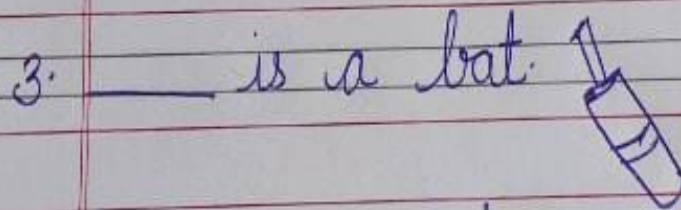 3. ____ is a bat.